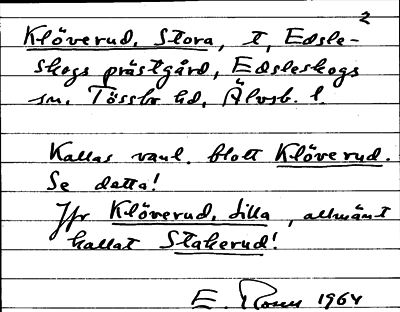 2
Klöverud, Stora, t, Edsle-
skogs prästgård, Edsleskogs
sn. Tössbo hd, Älvsb. l.
Kallas vanl. blott Klöverud.
Se detta!
Jfr Klöverud, Lilla, allmänt
kallat Stakerud!
E. 1964